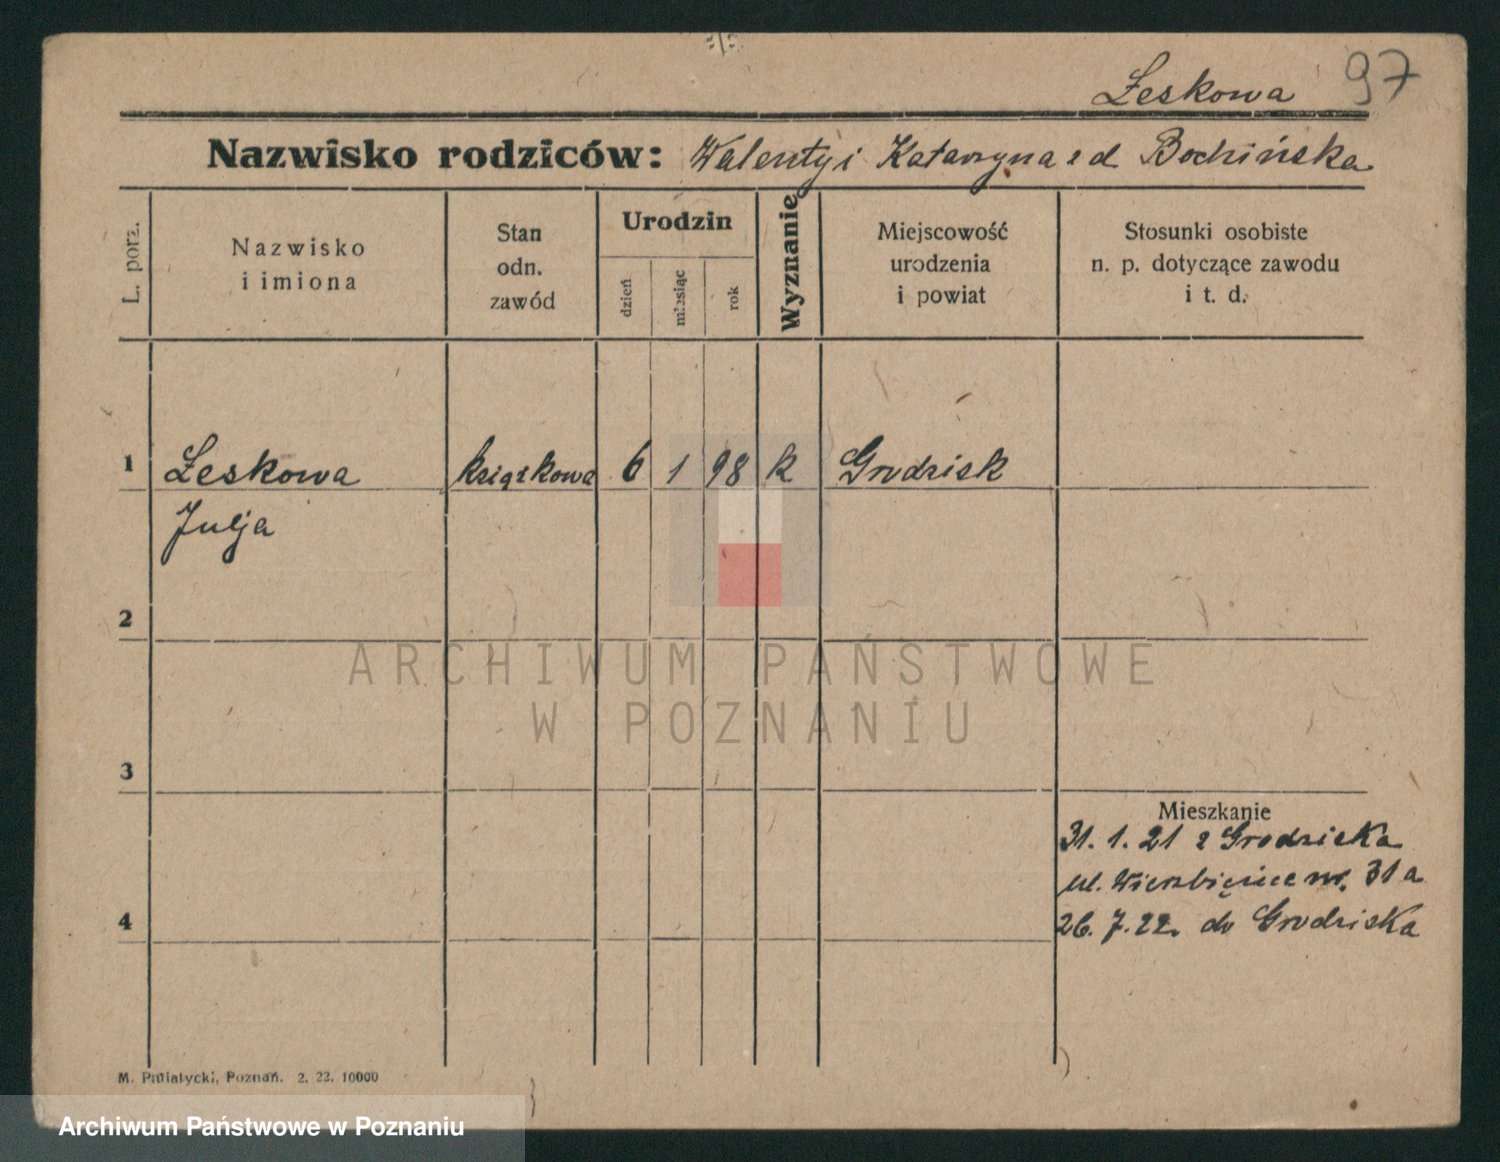 Łeskowa 97
Nazwisko rodziców: Walenty i Katarzyna z d Bochińska
L. porz.
Nazwisko
i imiona
Stan
odn.
zawód
Urodzin
dzień
miesiąc
rok
Wyznanie
Miejscowość
urodzenia
i powiat
Stosunki osobiste
n. p. dotyczące zawodu
i t. d.
1 Łeskowa książkowa 6 1 98 k Grodzisk
Julja
2
3
Mieszkanie
31. 1. 21 z Grodziska
ul. Wierzbięcice nr. 31a
4
26. 7. 22. do Grodziska
ARCHIWUM PAŃSTWOWE
W POZNANIU
M. Putiatycki, Poznań. 2. 22. 10000
Archiwum Państwowe w Poznaniu